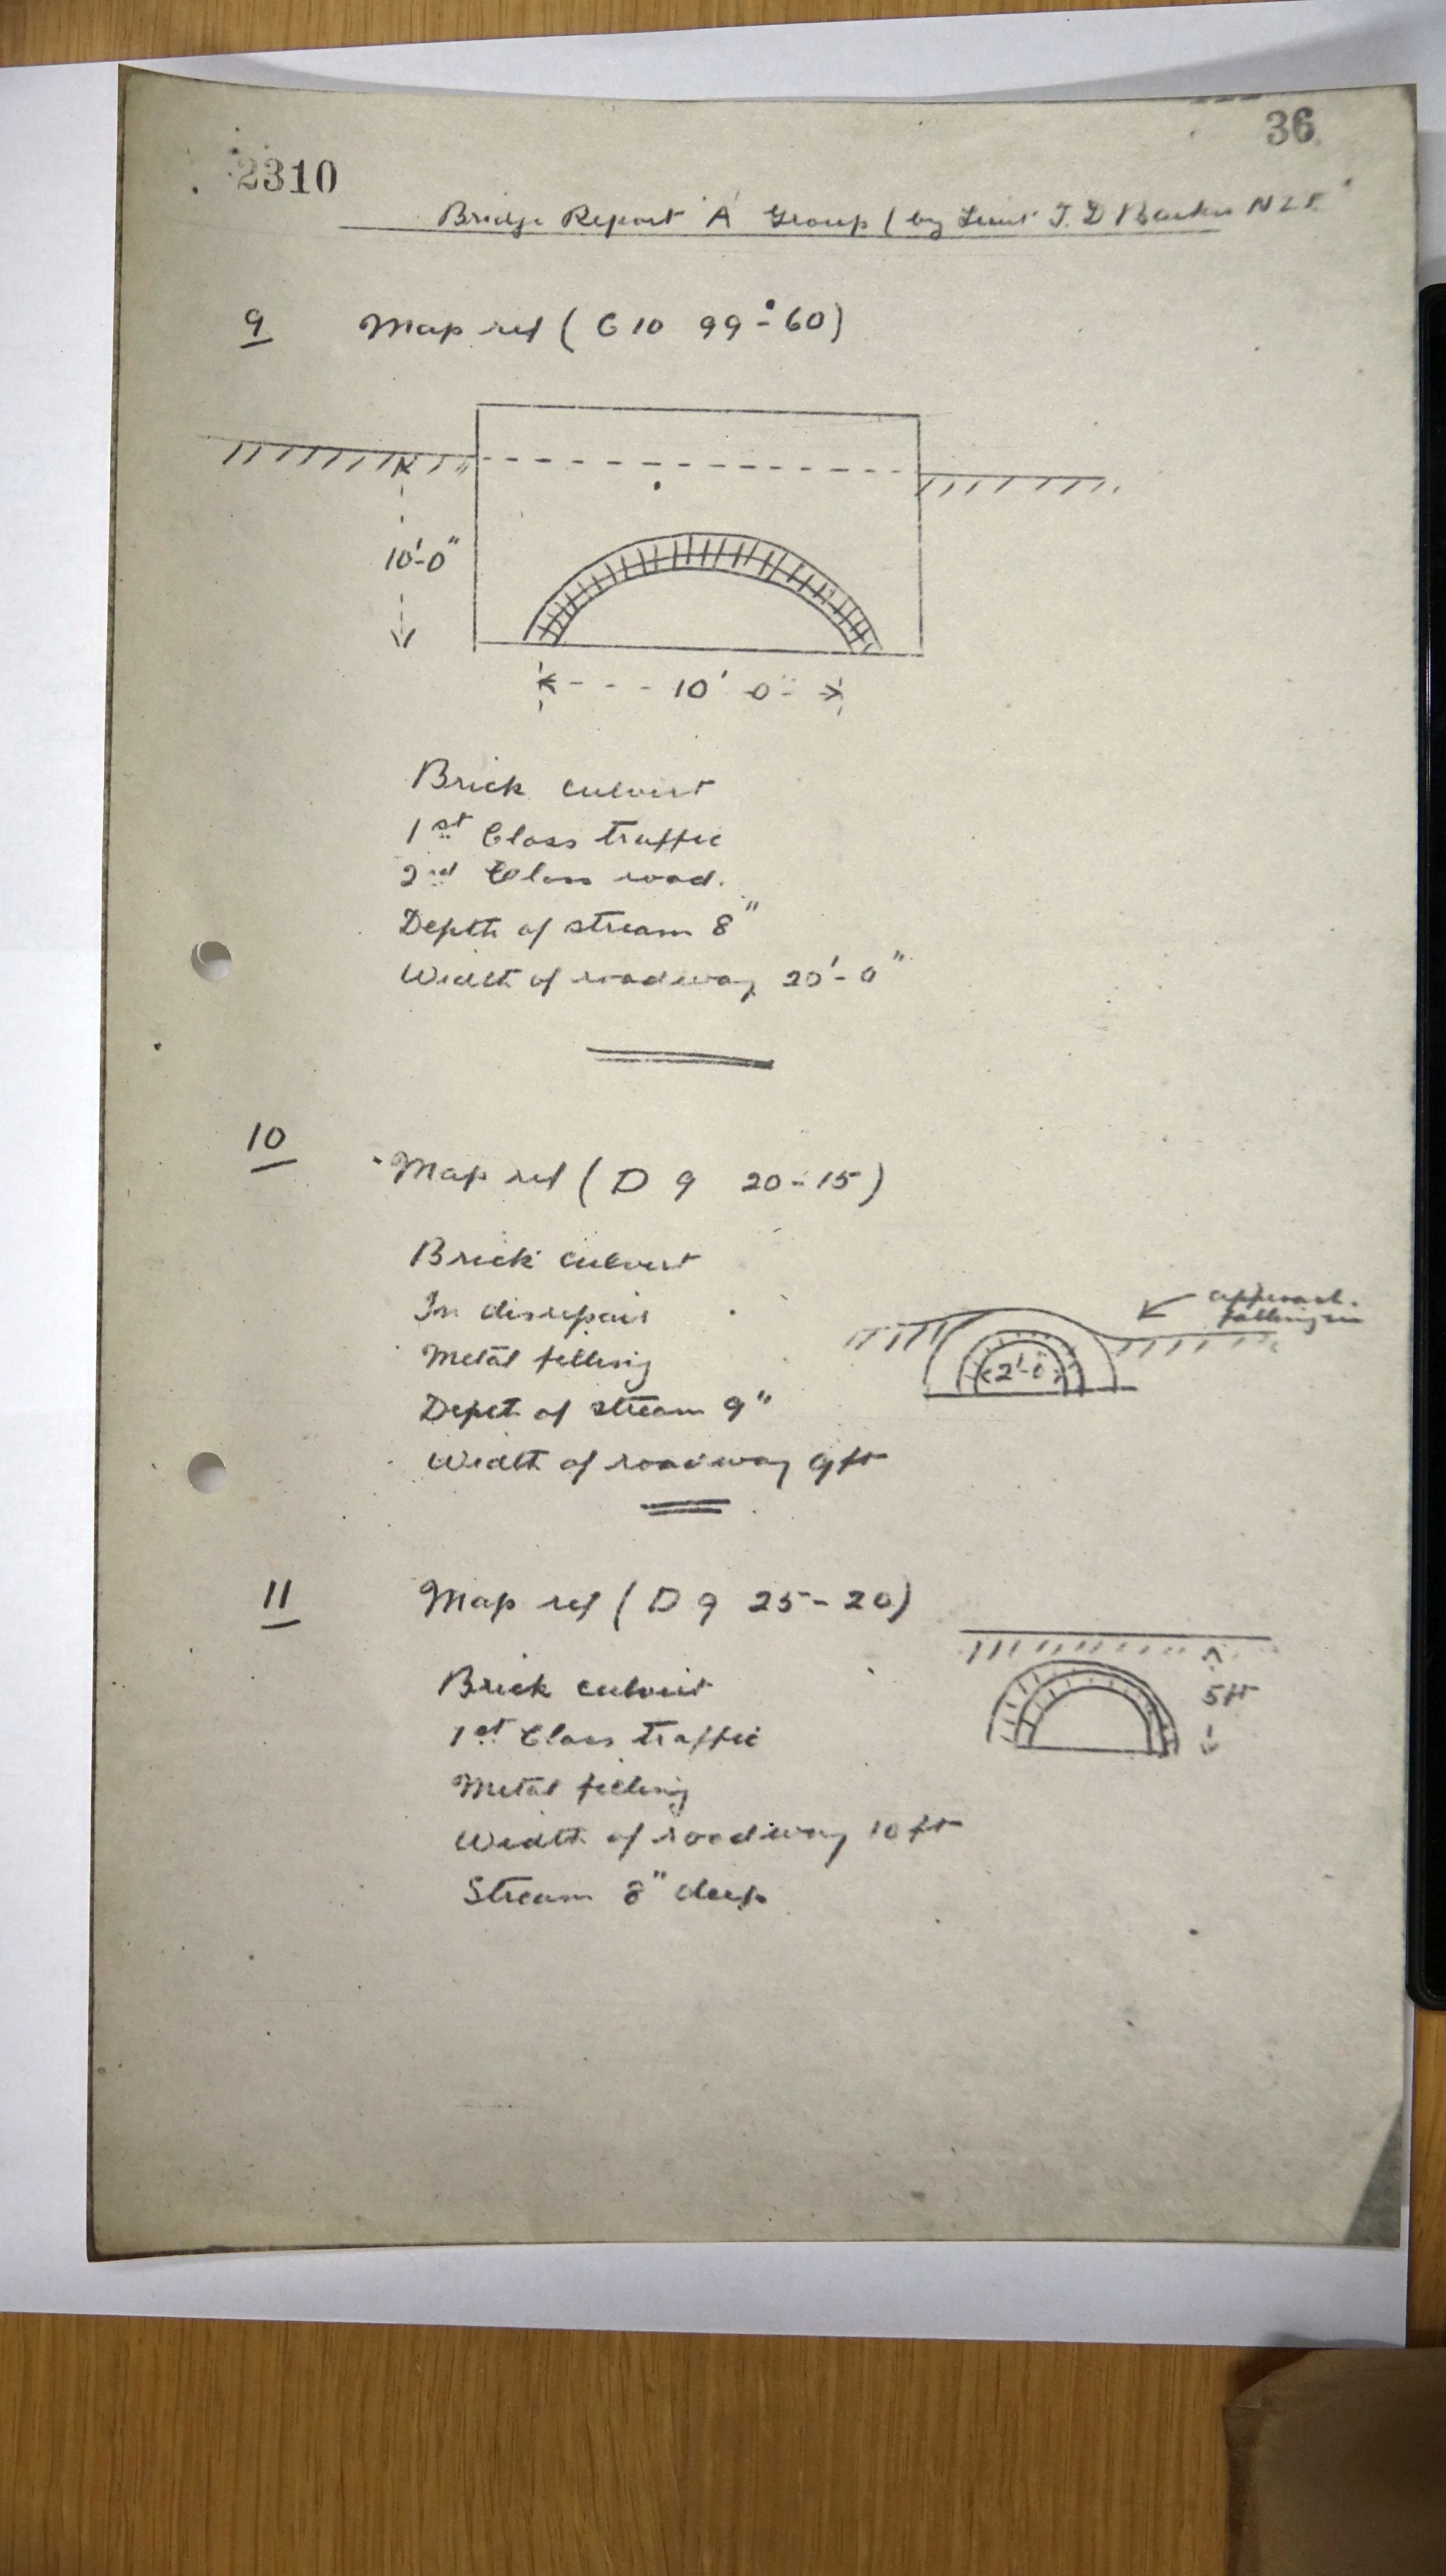 36
2310
Bridge Report 'A' Group (by Lieut J. D N Z E
9 Map ref ( C 10 99-60)
10'-0"
10' 0"
Brick culvert
1st Class traffic
2nd Class road.
Depth of stream 8"
Width of roadway 20'-0"
10
Map ref ( D 9 20-15)
Brick culvert
In disrepair
approach
falling in
Metal filling
2'-0
Depth of stream 9"
Width of roadway 9 ft
11 Map ref ( D 9 25-20)
Brick culvert
5 ft
1st Class traffic
Metal filling
Width of roadway 10 ft
Stream 8" deep